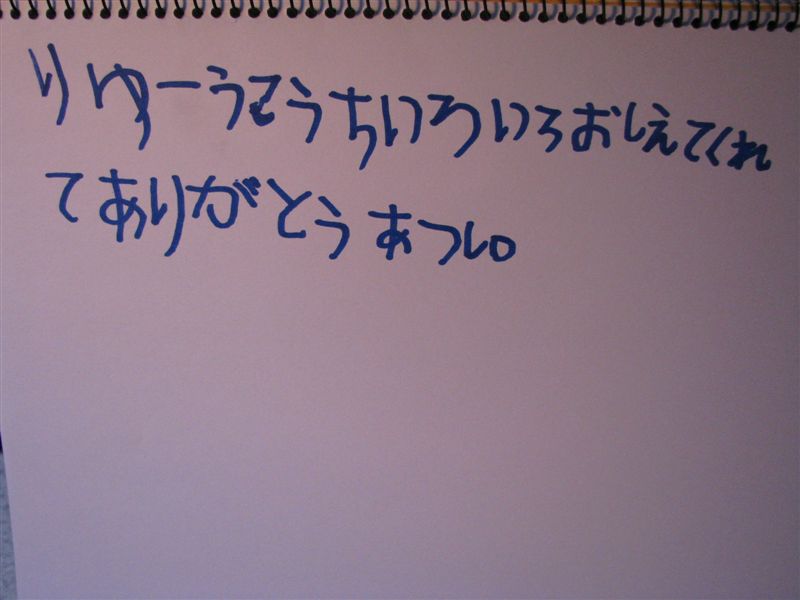 りゆーうそうちいろいろおしえてくれ
てありがとうあつし。